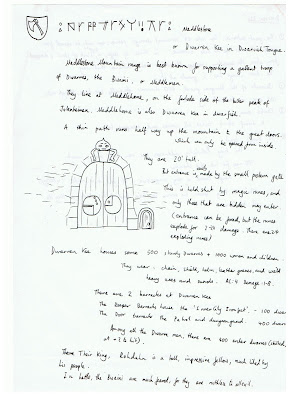 Meddlestone
or Dwarven Kee in Dwarvish Tongue.
Meddlestone Mountain range is best known for supporting a
of Dwarves, the Buini, or Meddlemen.
They live at Meddlehorne, on the side of the bitter peak of
Meddlehorne is also Dwarven Kee in dwarfish.
A thin path runs half way up the mountain to the great doors.
which can only be opened from inside.
They are 20' tall.
But entrance is made by the small postern gate
This is held shut by magic runes, and
only those that are bidden may enter
(entrance can be forced, but the runes
explode for damage. There are
exploding runes)
Dwarven Kee houses some 500 sturdy Dwarves + 1000 women and children.
They wear chain, shield, helm, leather greaves, and wield
heavy axes and swords. AC:4 Damage 1-8.
There are 2 barracks at Dwarven Kee
The Barracks house the
The Door Barracks the Patrol and dungeonguard.
Among all the Dwarven men, there are 400 order dwarves (skilled,
at +2 & hit).
There Their King, is a tall, impressive fellow, much liked by
his people.
In battle, the Buini are much feared, for they are ruthless to all